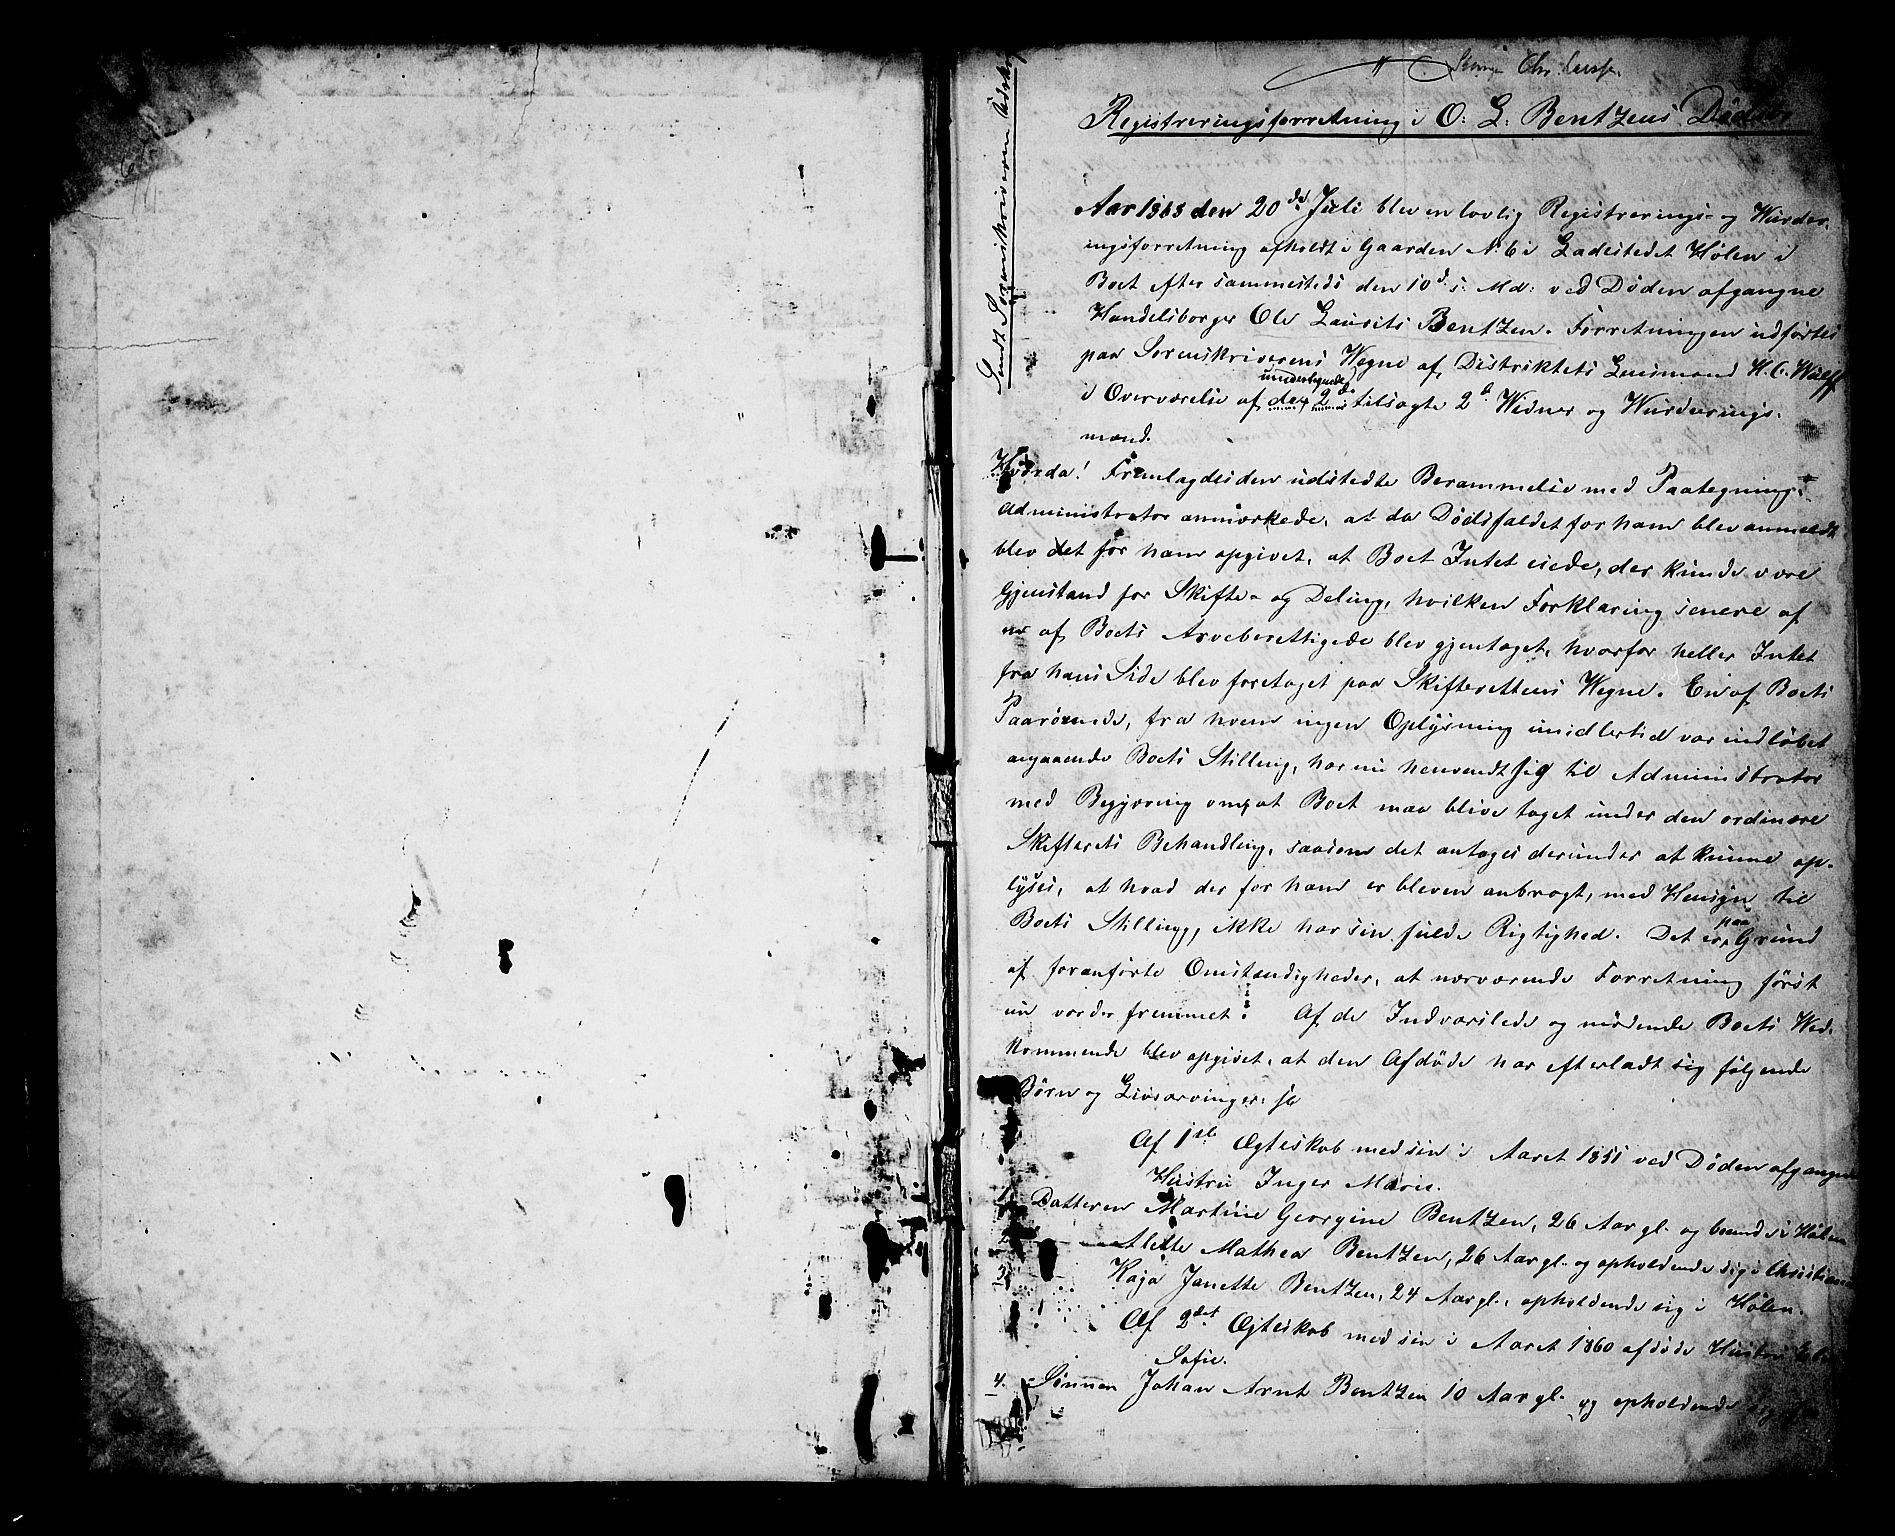 Registreringsforretning i O: L: Bentzens Dødsbo
Sendt Sorenskriveren Udskr
Aar 1868 den 20de Juli blev en lovlig Registrerings- og Wurder-
ingsforretning afholdt i Gaarden N: 6 i Ladestedet Hølen i
Boet efter sammesteds den 10d s: Md: ved Døden afgangne
Handelsborger Ole Laurits Bentzen. Forretningen udførtes
paa Sorenskriverens Wegne af Distriktets Lensmand H. C. Wulff
undertegnede
i Overværelse af de 2de tilsagte 2d Widner og Wurderings-
mænd.
Hvorda! Fremlagdes den udstedte Berammelse med Paategning.
Administrator anmærkede, at da Dødsfaldet for ham blev anmeldt
blev det for ham opgivet, at Boet Intet eiede, der kunde være
Gjenstand for Skifte- og Deling, hvilken Forklaring senere af
en af Boets Arveberettigede blev gjentaget, hvorfor heller Intet
fra hans Side blev foretaget paa Skifterettens Wegne. En af Boets
Paarørende, fra hvem ingen Oplysning imidlertid var indløbet
angaaende Boets Stilling, har nu henvendt sig til Administrator
med Begjæring om, at Boet maa blive taget under den ordinære
Skifterets Behandling, saasom det antages derunder at kunne op-
lyses, at hvad der for ham er bleven anbragt, med Hensyn til
Boets Stilling, ikke har sin fulde Rigtighed. Det er paa Grund
af foranførte Omstændigheder, at nærværende Forretning først
nu vorder fremmet. Af de Indvarslede og mødende Boets Wed-
kommende blev opgivet, at den Afdøde har efterladt sig følgende
Børn og Livsarvinger:
Af 1ste Ægteskab med sin i Aaret 1851 ved Døden afgangne
Hustru Inger Marie.
1. Datteren Martine Georgine Bentzen, 26 Aar gl. og boende i Hølen
2. — Alette Mathea Bentzen, 26 Aar gl. og opholdende sig i Christiania
3. Kaja Janette Bentzen, 24 Aar gl., opholdende sig i Hølen.
Af 2det Ægteskab med sin i Aaret 1860 afdøde Hustru
Sofie.
4. Sønnen Johan Arnt Bentzen 10 Aar gl. og opholdende sig